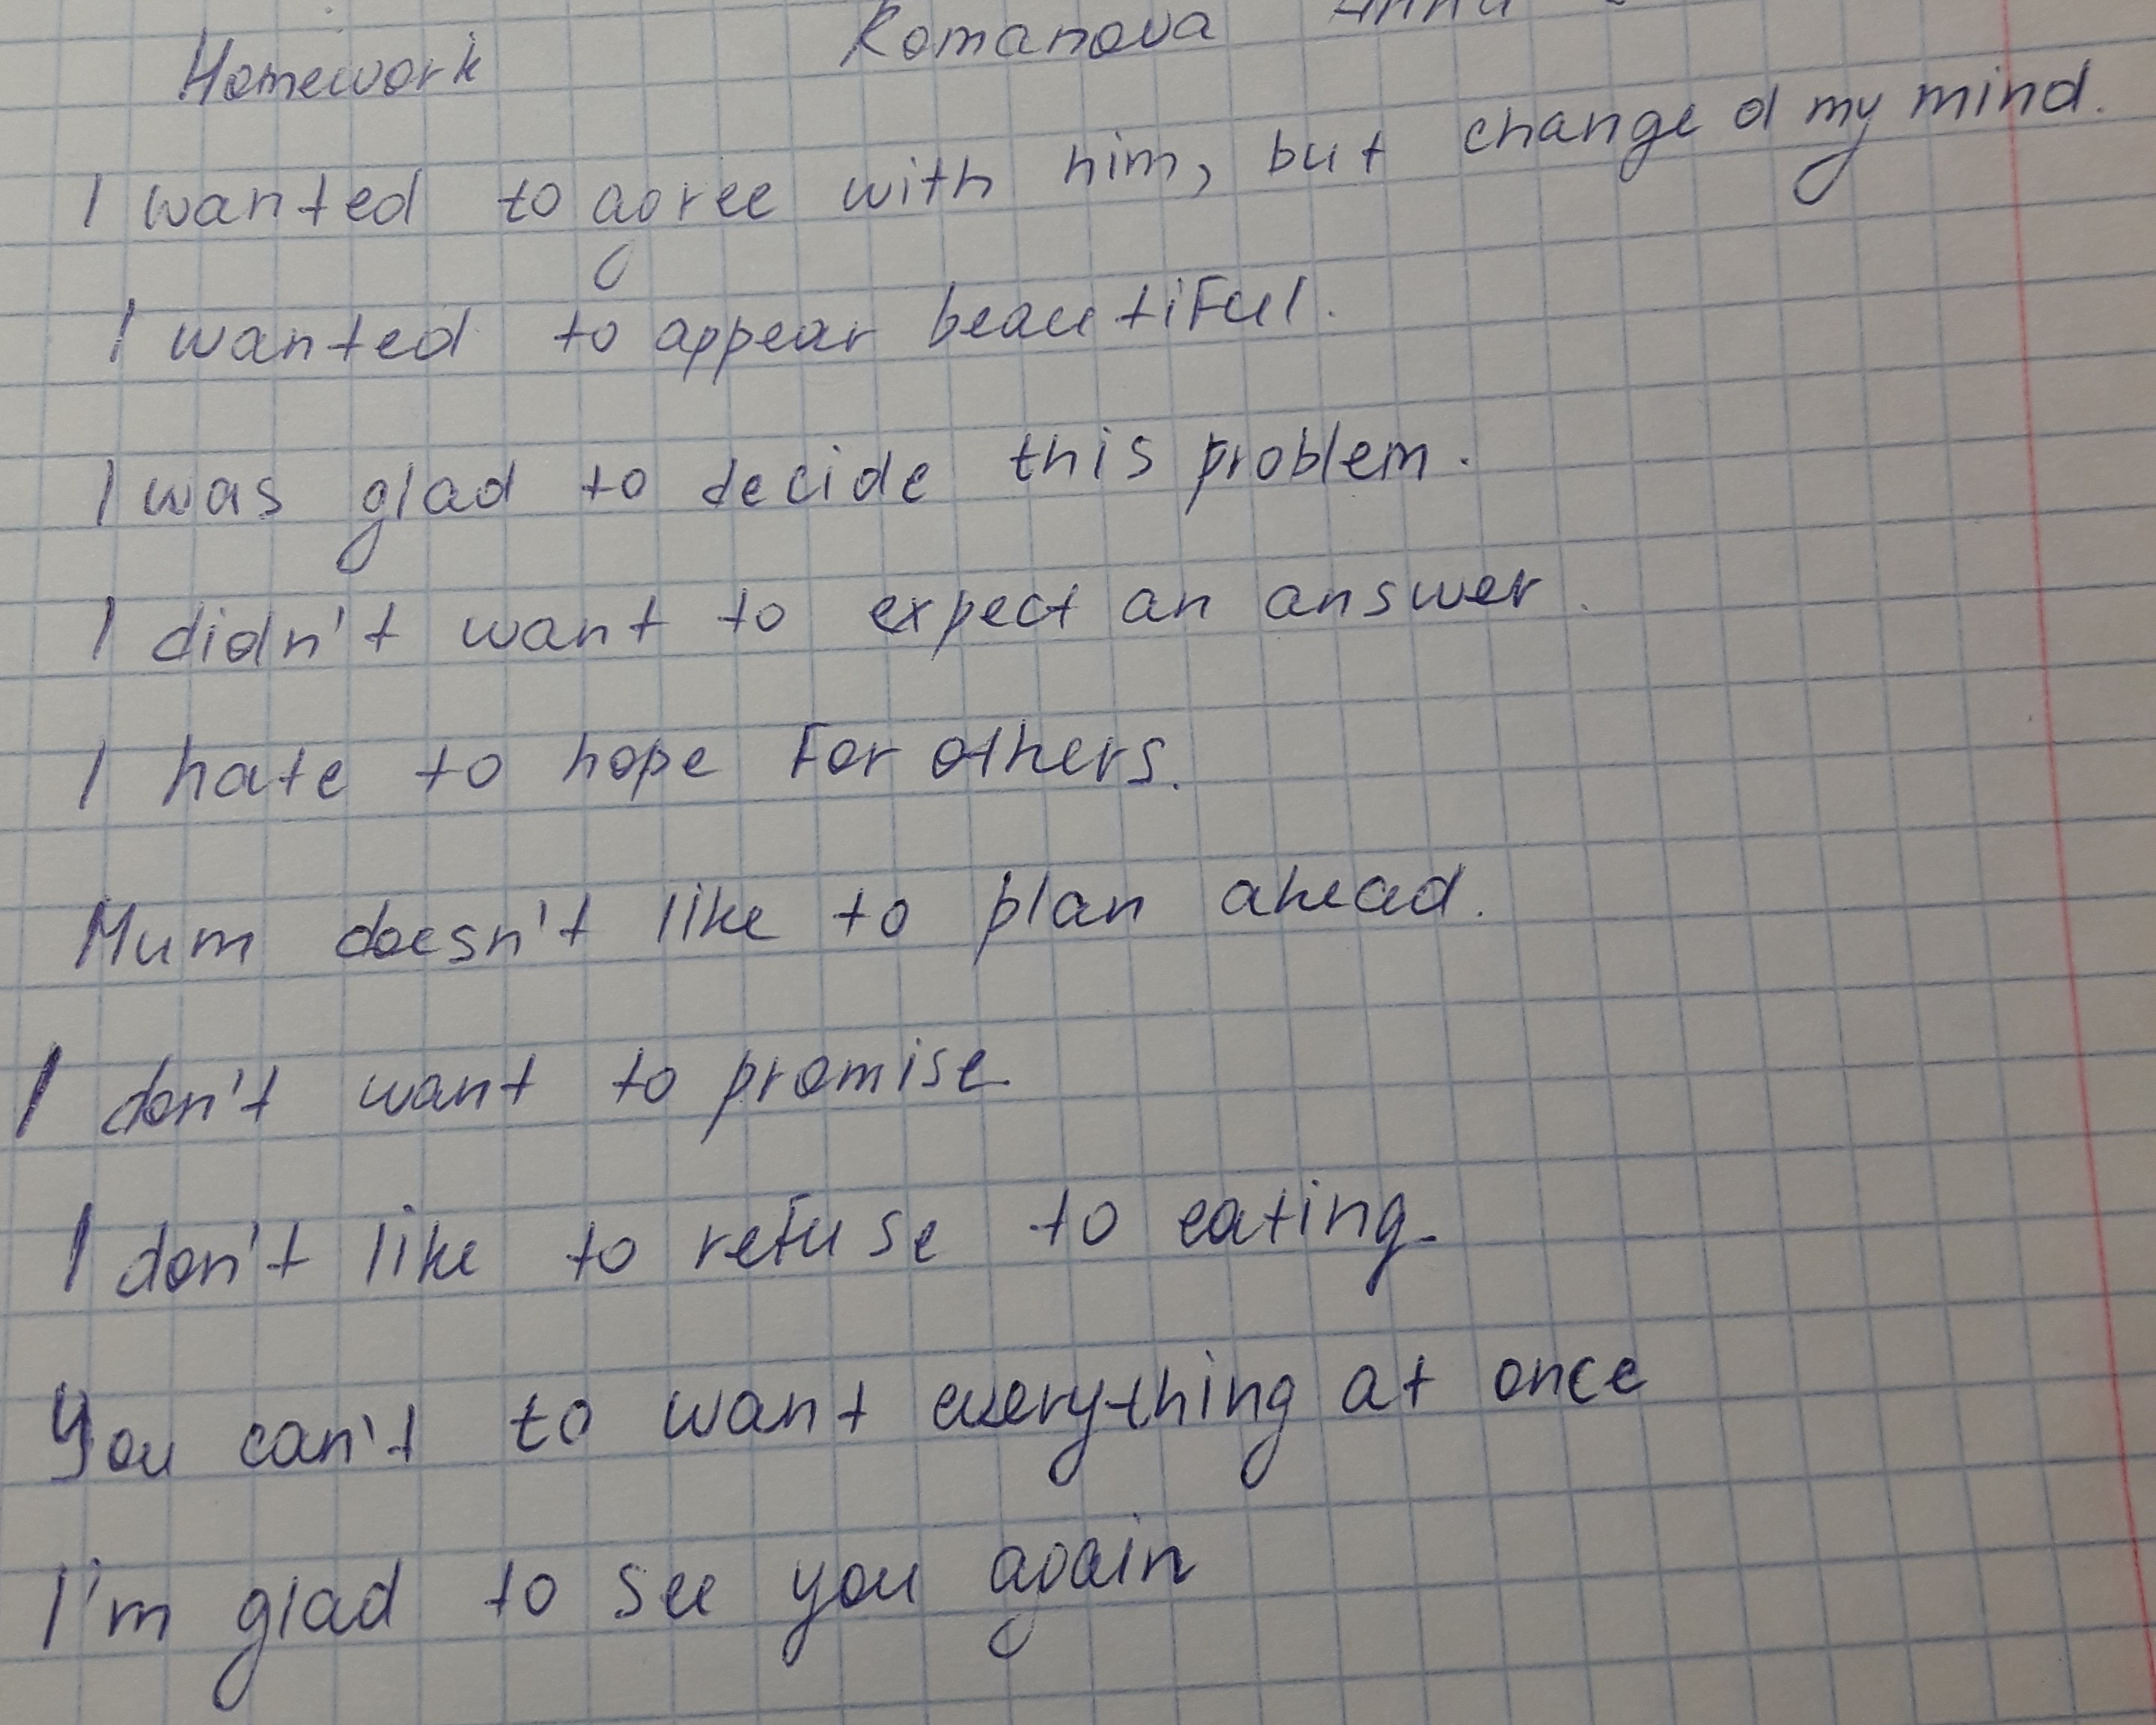 Homework Romanova Anna
I wanted to agree with him, but changed my mind.
I wanted to appear beautiful.
I was glad to decide this problem.
I didn't want to expect an answer.
I hate to hope for others.
Mum doesn't like to plan ahead.
I don't want to promise.
I don't like to refuse to eating.
You can't to want everything at once
I'm glad to see you again